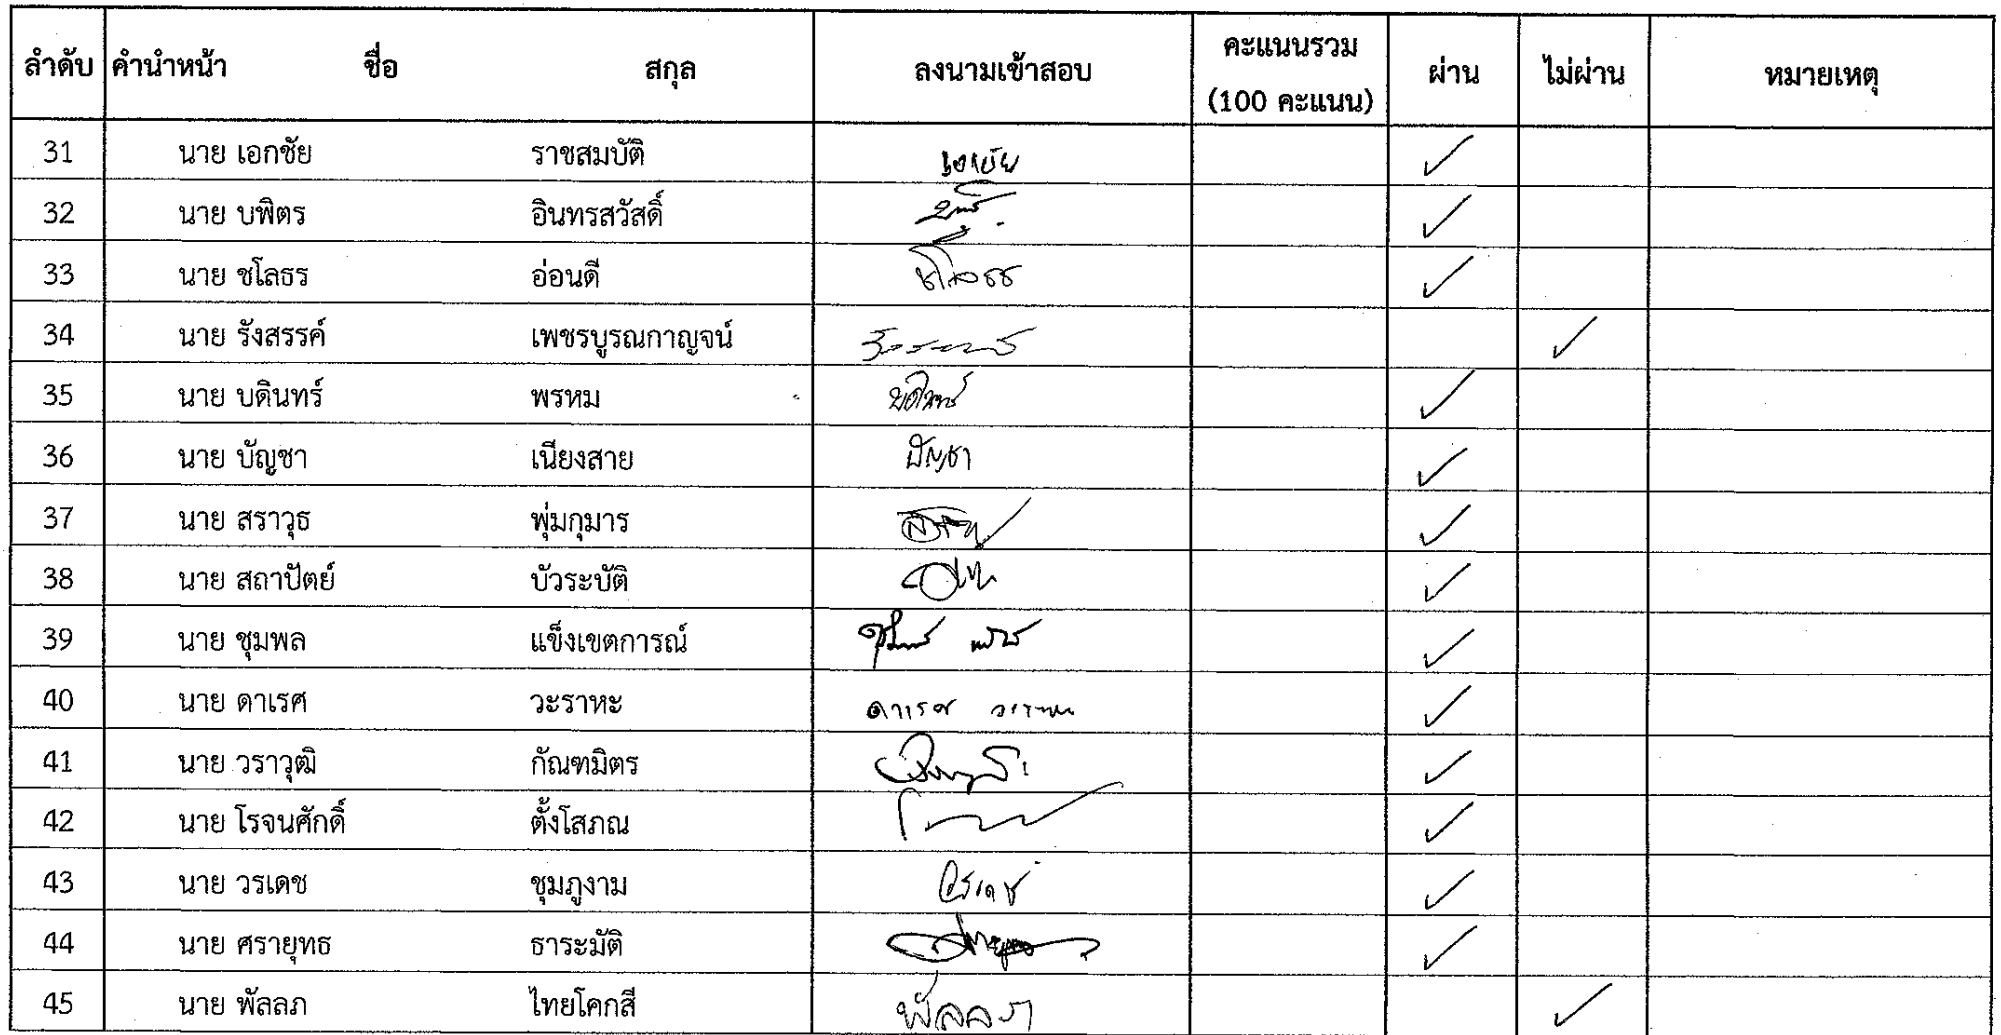 ลำดับ คำนำหน้า ชื่อ สกุล ลงนามเข้าสอบ คะแนนรวม (100 คะแนน) ผ่าน ไม่ผ่าน หมายเหตุ
31 นาย เอกชัย ราชสมบัติ เอกชัย ✓
32 นาย บพิตร อินทรสวัสดิ์ ✓
33 นาย ชโลธร อ่อนดี ชโลธร ✓
34 นาย รังสรรค์ เพชรบูรณกาญจน์ ✓
35 นาย บดินทร์ พรหม บดินทร์ ✓
36 นาย บัญชา เนียงสาย บัญชา ✓
37 นาย สราวุธ พุ่มกุมาร ✓
38 นาย สถาปัตย์ บัวระบัติ ✓
39 นาย ชุมพล แข็งเขตการณ์ ✓
40 นาย ดาเรศ วะราหะ ดาเรศ วะราหะ ✓
41 นาย วราวุฒิ กัณฑมิตร ✓
42 นาย โรจนศักดิ์ ตั้งโสภณ ✓
43 นาย วรเดช ชุมภูงาม วรเดช ✓
44 นาย ศรายุทธ ธาระมัติ ✓
45 นาย พัลลภ ไทยโคกสี พัลลภ ✓